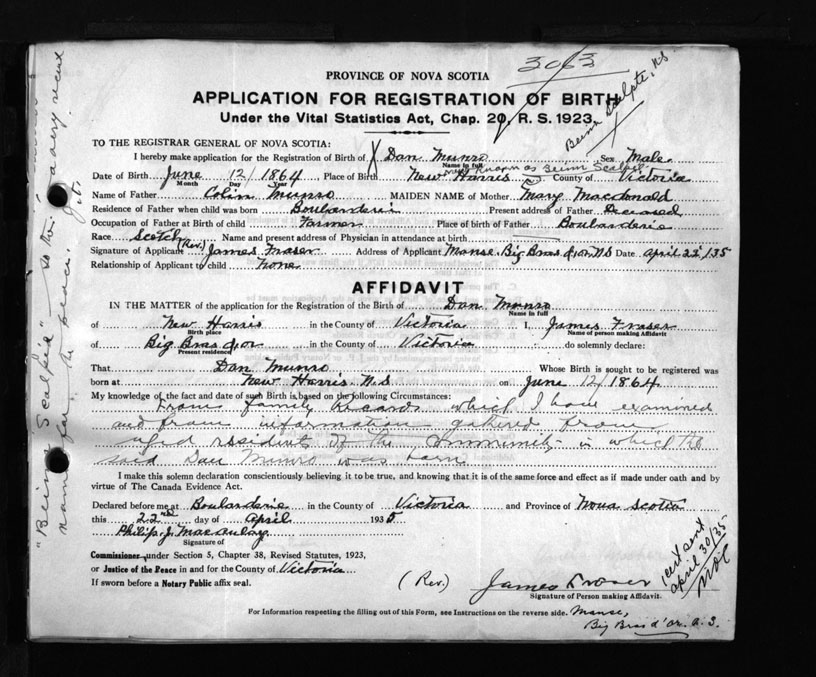 3063
PROVINCE OF NOVA SCOTIA
APPLICATION FOR REGISTRATION OF BIRTH
Under the Vital Statistics Act, Chap. 20, R. S. 1923.
Beinn Scalpie, NS
TO THE REGISTRAR GENERAL OF NOVA SCOTIA:
I hereby make application for the Registration of Birth of Dan Munro Sex Male
Name in full
now known as Beinn Scalpie
Date of Birth June 12/ 1864 Place of Birth New Harris County of Victoria
Month Day Year
Name of Father Colin Munro MAIDEN NAME of Mother Mary Macdonald
Residence of Father when child was born Boularderie Present address of Father Deceased
Occupation of Father at Birth of child Farmer Place of birth of Father Boularderie
Race Scotch Name and present address of Physician in attendance at birth
Signature of Applicant (Rev.) James Fraser Address of Applicant Manse, Big Bras d'or, N S Date April 22/35
Relationship of Applicant to child None
AFFIDAVIT
IN THE MATTER of the application for the Registration of the Birth of Dan Munro
Name in full
of New Harris in the County of Victoria I, James Fraser
Birth place Name of person making Affidavit
of Big Bras d'or in the County of Victoria do solemnly declare:
Present residence
That Dan Munro Whose Birth is sought to be registered was
born at New Harris N.S on June 12/ 1864
My knowledge of the fact and date of such Birth is based on the following Circumstances:
From family Records which I have examined
and from information gathered from
aged residents of the Community in which the
said Dan Munro was born
I make this solemn declaration conscientiously believing it to be true, and knowing that it is of the same force and effect as if made under oath and by
virtue of The Canada Evidence Act.
Declared before me at Boularderie in the County of Victoria and Province of Nova Scotia
this 22nd day of April 1935
Philip J. MacAulay
Signature of
Commissioner under Section 5, Chapter 38, Revised Statutes, 1923,
or Justice of the Peace in and for the County of Victoria
If sworn before a Notary Public affix seal.
(Rev.) James Fraser
Signature of Person making Affidavit.
For Information respecting the filling out of this Form, see Instructions on the reverse side.
Manse,
Big Bras d'or. N. S.
cert sent
April 30/35
"Beinn Scalpie" is the
name for the place.
a very recent